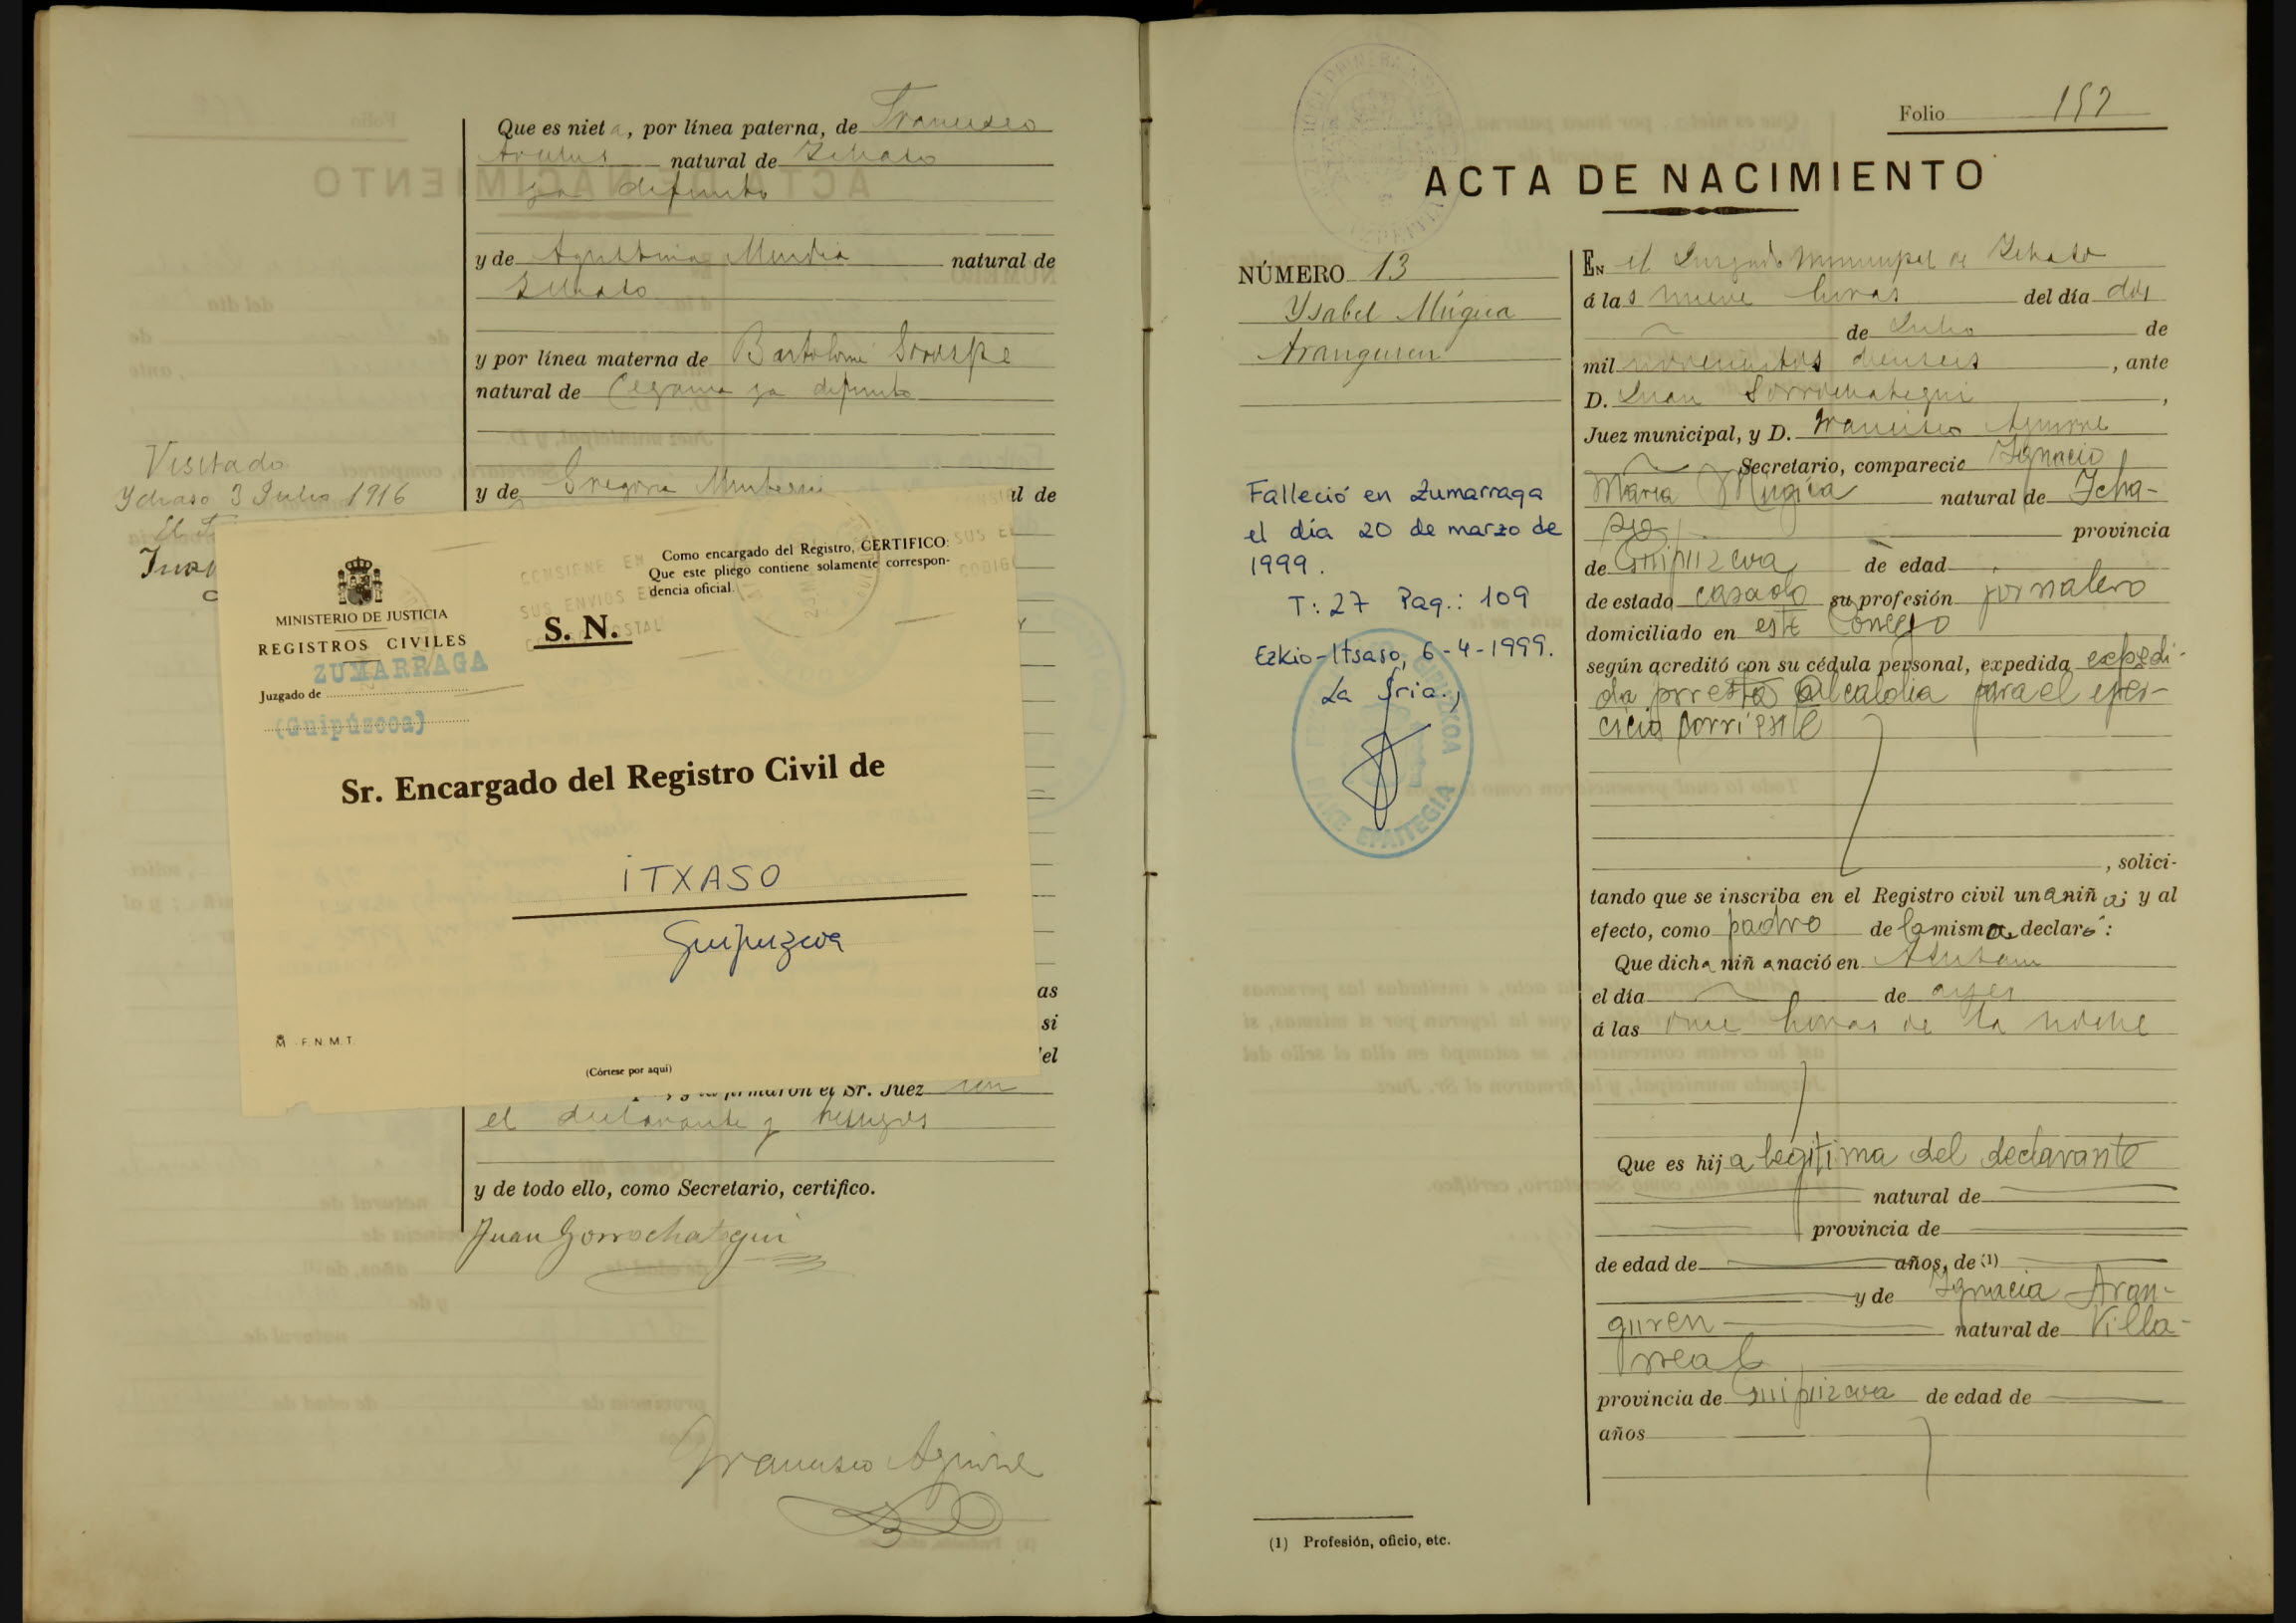 Que es nieta, por línea paterna, de Francisco
natural de Ichaso
ya difunto
y de Agustina Mendia natural de
Ichaso
y por línea materna de Bartolomé
natural de Cegama ya difunto
Visitado
Ychaso 3 Julio 1916
y de Gregoria
MINISTERIO DE JUSTICIA
REGISTROS CIVILES
ZUMARRAGA
Juzgado de
(Guipúscoa)
Como encargado del Registro, CERTIFICO:
Que este pliego contiene solamente correspon-
dencia oficial.
S. N.
Sr. Encargado del Registro Civil de
ITXASO
Guipuzcoa
F. N. M. T.
(Córtese por aquí)
as
si
el
firmaron el Sr. Juez con
el declarante y testigos
y de todo ello, como Secretario, certifico.
Juan Gorrochategui
Francisco Aguirre
Folio 157
ACTA DE NACIMIENTO
NÚMERO 13
Ysabel Múgica
Aranguren
Falleció en Zumarraga
el día 20 de marzo de
1999.
T: 27 Pag.: 109
Ezkio-Itsaso, 6-4-1999.
La Sria.,
EN el Juzgado municipal de Ichaso
á las nueve horas del día dos
de Julio de
mil novecientos dieciseis, ante
D. Juan Gorrochategui,
Juez municipal, y D. Francisco Aguirre
Secretario, comparecio Ignacio
Maria Mugica natural de Icha-
so provincia
de Guipuzcoa de edad
de estado casado su profesión jornalero
domiciliado en este Concejo
según acreditó con su cédula personal, expedida expedi-
da por esta Alcaldia para el ejer-
cicio corriente
, solici-
tando que se inscriba en el Registro civil una niña; y al
efecto, como padre de la misma, declaró:
Que dicha niña nació en
el día de ayer
á las once horas de la noche
Que es hija legitima del declarante
natural de
provincia de
de edad de años, de (1)
y de Ignacia Aran-
guren natural de Villa-
rreal
provincia de Guipuzcoa de edad de
años
(1) Profesión, oficio, etc.